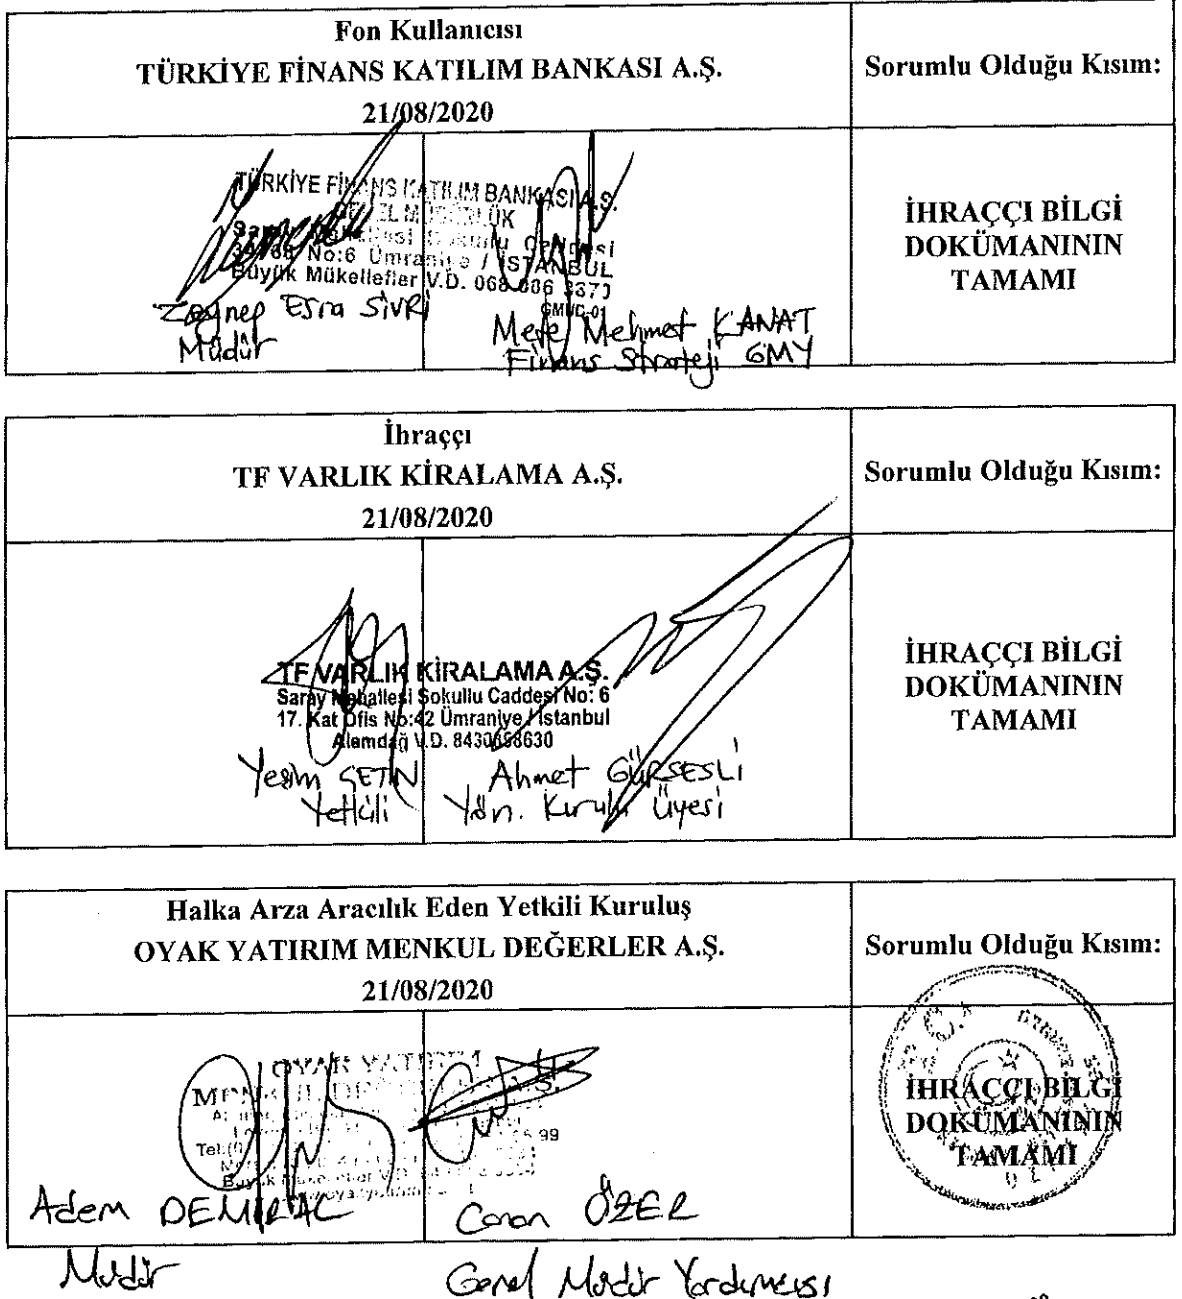 Fon Kullanıcısı
TÜRKİYE FİNANS KATILIM BANKASI A.Ş.
21/08/2020
Sorumlu Olduğu Kısım:
TÜRKİYE FİNANS KATILIM BANKASI A.Ş.
GENEL MÜDÜRLÜK
Saray Mahallesi Sokullu Caddesi
No:6 Ümraniye / İSTANBUL
Büyük Mükellefler V.D. 068
GMUC-01
Zeynep Esra SİVRİ
Müdür
Mete Mehmet KANAT
Finans Strateji GMY
İHRAÇÇI BİLGİ
DOKÜMANININ
TAMAMI
İhraççı
TF VARLIK KİRALAMA A.Ş.
21/08/2020
Sorumlu Olduğu Kısım:
TF VARLIK KİRALAMA A.Ş.
Saray Mahallesi Sokullu Caddesi No: 6
17. Kat Ofis No:42 Ümraniye / İstanbul
Alemdağ V.D. 8430698630
Yeşim ÇETİN
Yetkili
Ahmet GÜRSESLİ
Yön. Kurulu Üyesi
İHRAÇÇI BİLGİ
DOKÜMANININ
TAMAMI
Halka Arza Aracılık Eden Yetkili Kuruluş
OYAK YATIRIM MENKUL DEĞERLER A.Ş.
21/08/2020
Sorumlu Olduğu Kısım:
OYAK YATIRIM
MENKUL DEĞERLER A.Ş.
Adem DEMİRAL
Müdür
Canan ÖZER
Genel Müdür Yardımcısı
İHRAÇÇI BİLGİ
DOKÜMANININ
TAMAMI